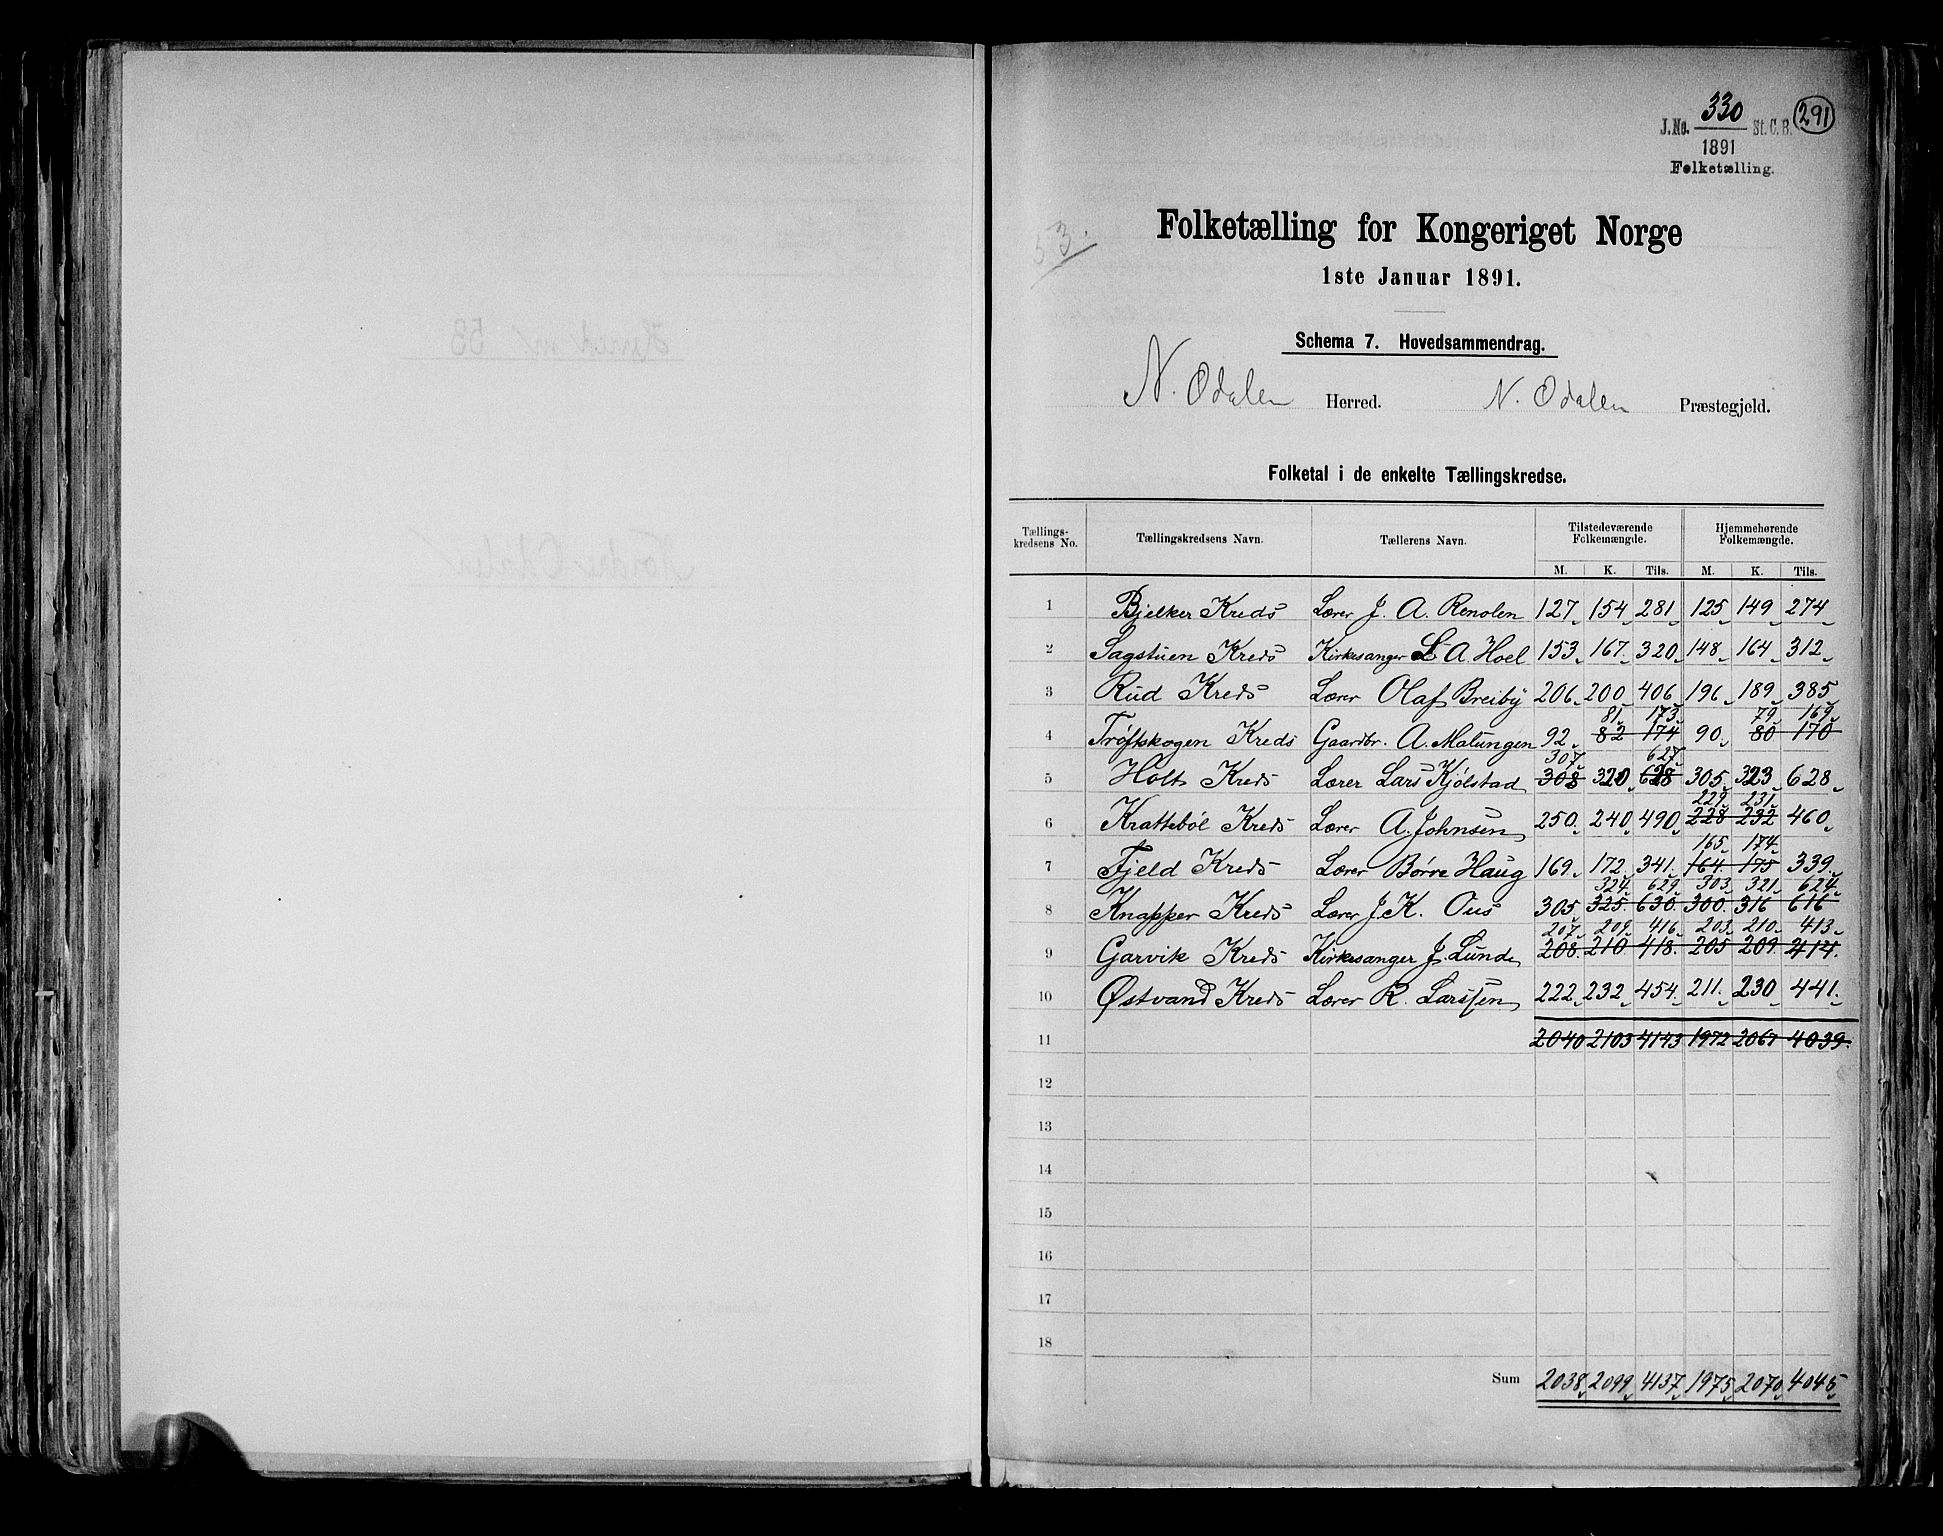 330
J.No. St. C. B. 291
1891
Folketælling.
53.
Folketælling for Kongeriget Norge
1ste Januar 1891.
Schema 7. Hovedsammendrag.
N. Odalen Herred. N. Odalen Præstegjeld.
Folketal i de enkelte Tællingskredse.
Tællings- kredsens No. Tællingskredsens Navn. Tællerens Navn. Tilstedeværende Folkemængde. Hjemmehørende Folkemængde.
M. K. Tils. M. K. Tils.
1 Bjelker Kreds Lærer J. A. Renolen 127 154 281 125 149 274
2 Sagstuen Kreds Kirkesanger L A. Hoel 153 167 320 148 164 312
3 Rud Kreds Lærer Olaf Breiby 206 200 406 196 189 385
81 173 79 169
4 Trøftskogen Kreds Gaardbr. A. Malungen 92 82 174 90 80 170
307 627
5 Holt Kreds Lærer Lars Kjølstad 308 320 628 305 323 628
229 231
6 Krattebøl Kreds Lærer A. Johnsen 250 240 490 228 232 460
165 174
7 Fjeld Kreds Lærer Børre Haug 169 172 341 164 175 339
324 629 303 321 624
8 Knapper Kreds Lærer J. K. Ous 305 325 630 300 316 616
207 209 416 203 210 413
9 Garvik Kreds Kirkesanger J. Lunde 208 210 418 205 209 414
10 Østvand Kreds Lærer R. Larssen 222 232 454 211 230 441
11 2040 2103 4143 1972 2067 4039
12
13
14
15
16
17
18
Sum 2038 2099 4137 1975 2070 4045